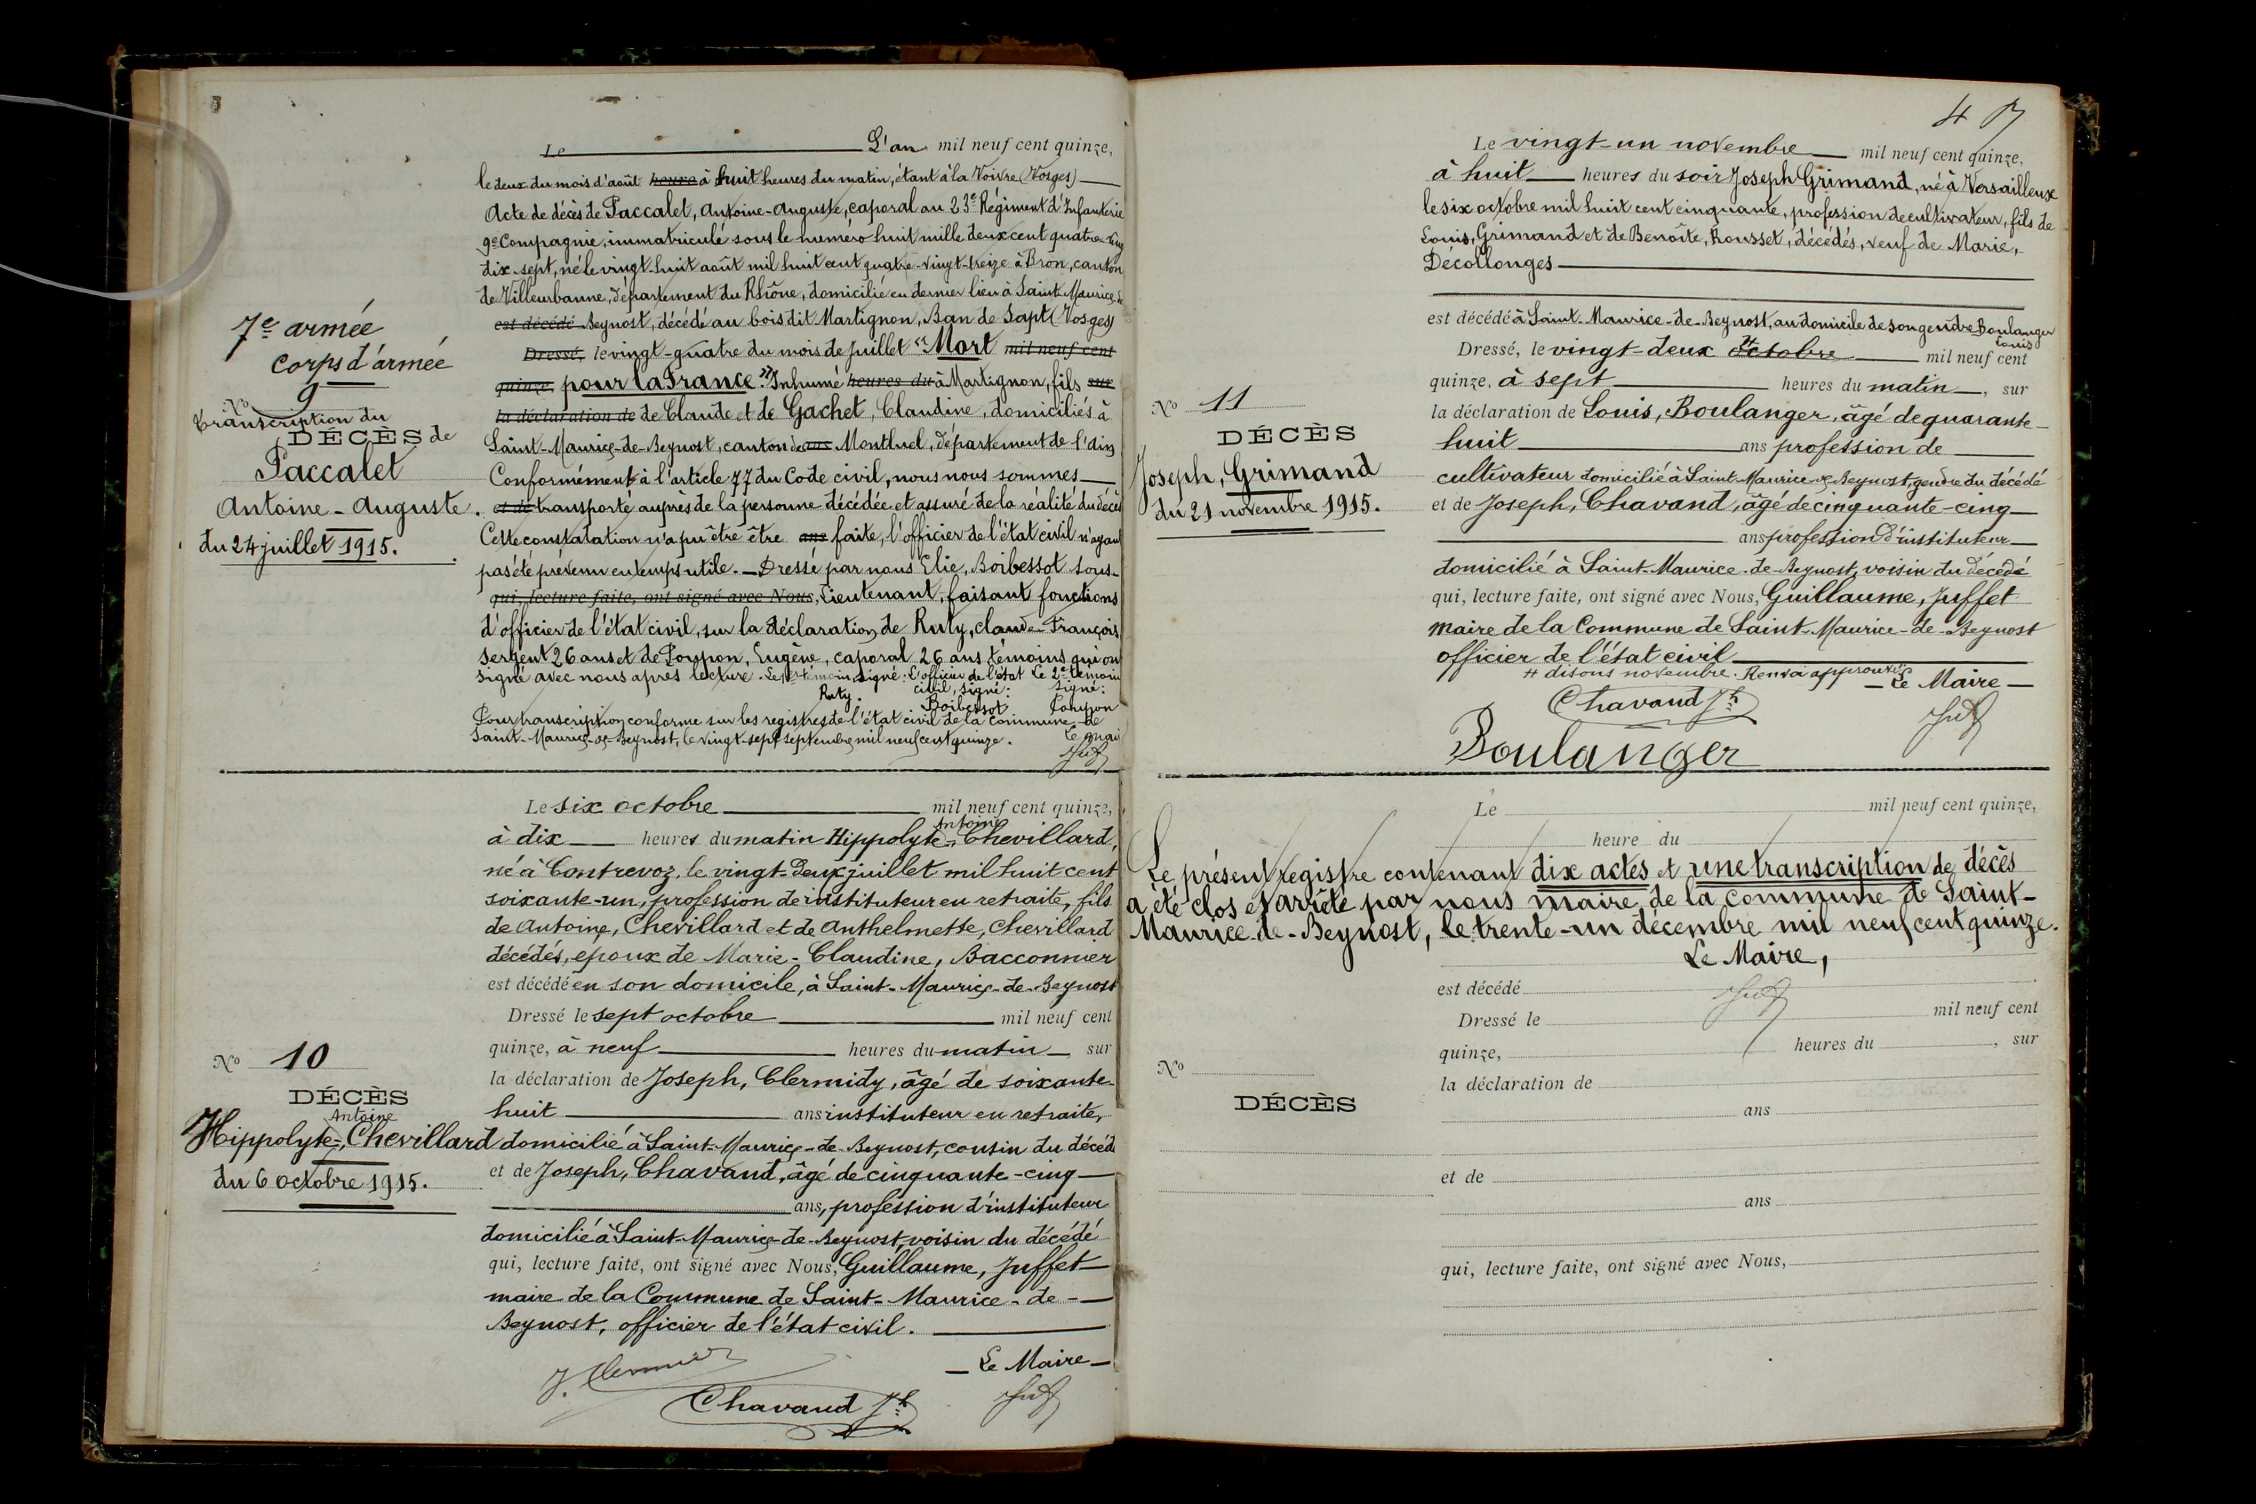 7e armée
corps d'armée
No 9
transcription du
DÉCÈS de
Paccalet
Antoine-Auguste.
du 24 juillet 1915.
Le L'an mil neuf cent quinze,
le deux du mois d'août heure à huit heures du matin, étant à la Voivre (Vosges)
Acte de décès de Paccalet, Antoine-Auguste, caporal au 23e Régiment d'Infanterie
9e Compagnie, immatriculé sous le numéro huit mille deux cent quatre-ving
dix-sept, né le vingt-huit août mil huit cent quatre-vingt-treize à Bron, canton
de Villeurbanne, département du Rhône, domicilié en dernier lieu à Saint-Maurice-de
est décédé Beynost, décédé au bois dit Martignon, Ban de Sapt (Vosges)
Dressé, le vingt-quatre du mois de juillet "Mort mil neuf cent
quinze, pour la France." Inhumé heures du à Martignon, fils sur
la déclaration de de Claude et de Gachet, Claudine, domiciliés à
Saint-Maurice-de-Beynost, canton de ans Montluel, département de l'Ain
Conformément à l'article 77 du Code civil, nous nous sommes
et de transporté auprès de la personne décédée et assuré de la réalité du décès
Cette constatation n'a pu être être ans faite, l'officier de l'état civil n'ayant
pas été prévenu en temps utile. — Dressé par nous Elie, Boibessot sous-
qui, lecture faite, ont signé avec Nous, lieutenant, faisant fonctions
d'officier de l'état civil, sur la déclaration de Ruty, claude-François,
sergent 26 ans et de Poupon, Eugène, caporal 26 ans témoins qui ont
signé avec nous après lecture. Le 1er témoin, signé: L'officier de l'état Le 2e témoin
Ruty. civil, signé: signé:
Boibessot Poupon
Pour transcription conforme sur les registres de l'état civil de la commune de
Saint-Maurice-de-Beynost, le vingt-sept septembre mil neuf cent quinze. Le maire
No 10
DÉCÈS
Antoine
Hippolyte-, Chevillard
du 6 octobre 1915.
Le six octobre mil neuf cent quinze,
Antoine
à dix heures du matin Hippolyte-, Chevillard,
né à Contrevoz, le vingt-deux juillet mil huit cent
soixante-un, profession de instituteur en retraite, fils
de Antoine, Chevillard et de Anthelmette, Chevillard
décédés, epoux de Marie-Claudine, Bacconnier
est décédé en son domicile, à Saint-Maurice-de-Beynost
Dressé le sept octobre mil neuf cent
quinze, à neuf heures du matin sur
la déclaration de Joseph, Clermidy, âgé de soixante-
huit ans instituteur en retraite,
domicilié à Saint-Maurice-de-Beynost, cousin du décédé
et de Joseph, Chavand, âgé de cinquante-cinq
ans, profession d'instituteur
domicilié à Saint-Maurice-de-Beynost, voisin du décédé
qui, lecture faite, ont signé avec Nous, Guillaume, Juffet
maire de la Commune de Saint-Maurice-de-
Beynost, officier de l'état civil.
— Le Maire —
J. Clermidy
Chavand Jh
4
No 11
DÉCÈS
Joseph, Grimand
du 21 novembre 1915.
Le vingt-un novembre mil neuf cent quinze,
à huit heures du soir Joseph Grimand, né à Versailleux
le six octobre mil huit cent cinquante, profession de cultivateur, fils de
Louis, Grimand et de Benoîte, Rousset, décédés, veuf de Marie,
Décollonges
est décédé à Saint-Maurice-de-Beynost, au domicile de son gendre Boulanger
Louis
Dressé, le vingt-deux octobre mil neuf cent
quinze, à sept heures du matin, sur
la déclaration de Louis, Boulanger, âgé de quarante-
huit ans profession de
cultivateur domicilié à Saint-Maurice de Beynost, gendre du décédé
et de Joseph, Chavand, âgé de cinquante-cinq
ans profession d'instituteur
domicilié à Saint-Maurice-de-Beynost, voisin du décédé
qui, lecture faite, ont signé avec Nous, Guillaume, Juffet
maire de la Commune de Saint-Maurice-de-Beynost
officier de l'état civil
# disons novembre. Renvoi approuvé.
— Le Maire —
Chavand Jh
Boulanger
No
DÉCÈS
Le mil neuf cent quinze,
heure du
Le présent registre contenant dix actes et une transcription de décès
a été clos et arrêté par nous maire de la commune de Saint-
Maurice-de-Beynost, le trente-un décembre mil neuf cent quinze.
Le Maire,
est décédé
Dressé le mil neuf cent
quinze, heures du , sur
la déclaration de
ans
et de
ans
qui, lecture faite, ont signé avec Nous,